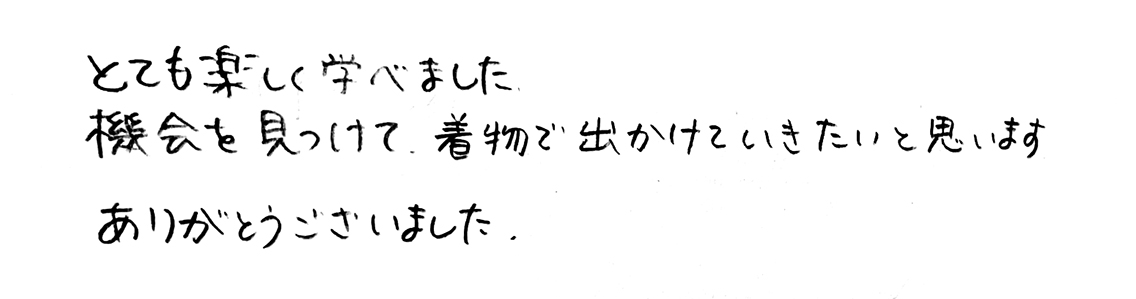 とても楽しく学べました.
機会を見つけて.着物で出かけていきたいと思います
ありがとうございました.